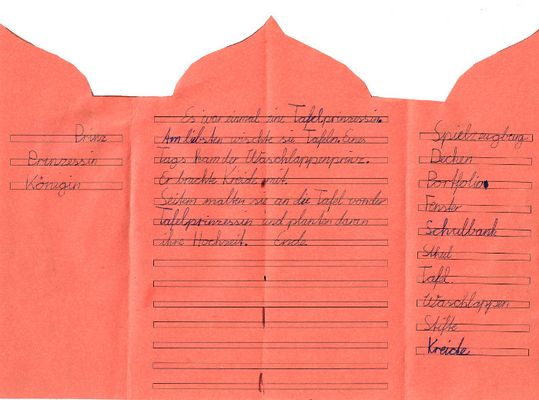 Prinz
Prinzessin
Königin
Es war einmal eine Tafelprinzessin.
Am libsten wischte sie Tafeln. Eines
Tags kam der Waschlappenprinz.
Er brachte Kreide mit.
Seitem malten sie an die Tafel vonder
Tafelprinzessin und planten daran
ihre Hochzeit. Ende.
Spielzeugberg
Decken
Portfolio
Fenster
Schulbank
Stuhl
Tafl.
Waschlappen
Stifte
Kreide